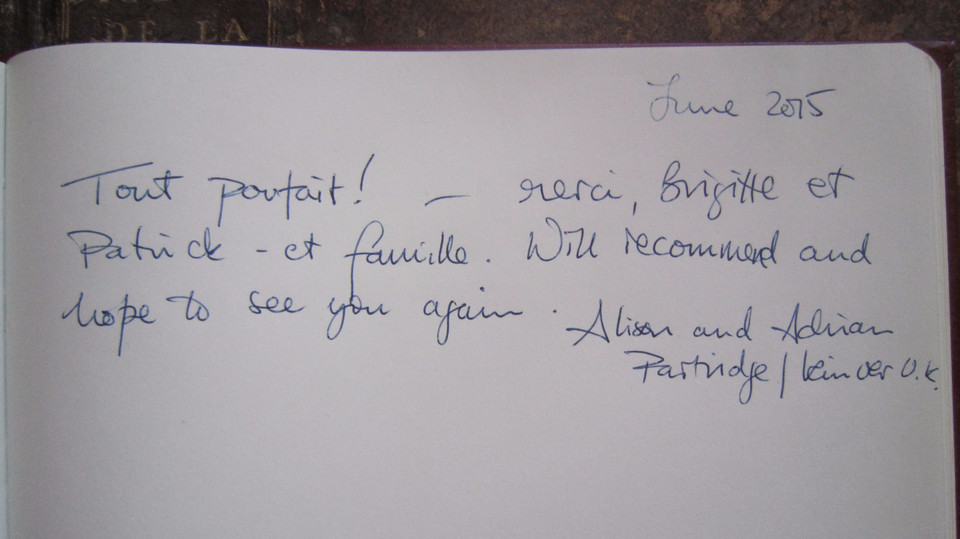 DE LA
June 2015
Tout parfait! — merci, Brigitte et
Patrick - et famille. Will recommend and
hope to see you again.
Alison and Adrian
Partridge / Kinver U.K.